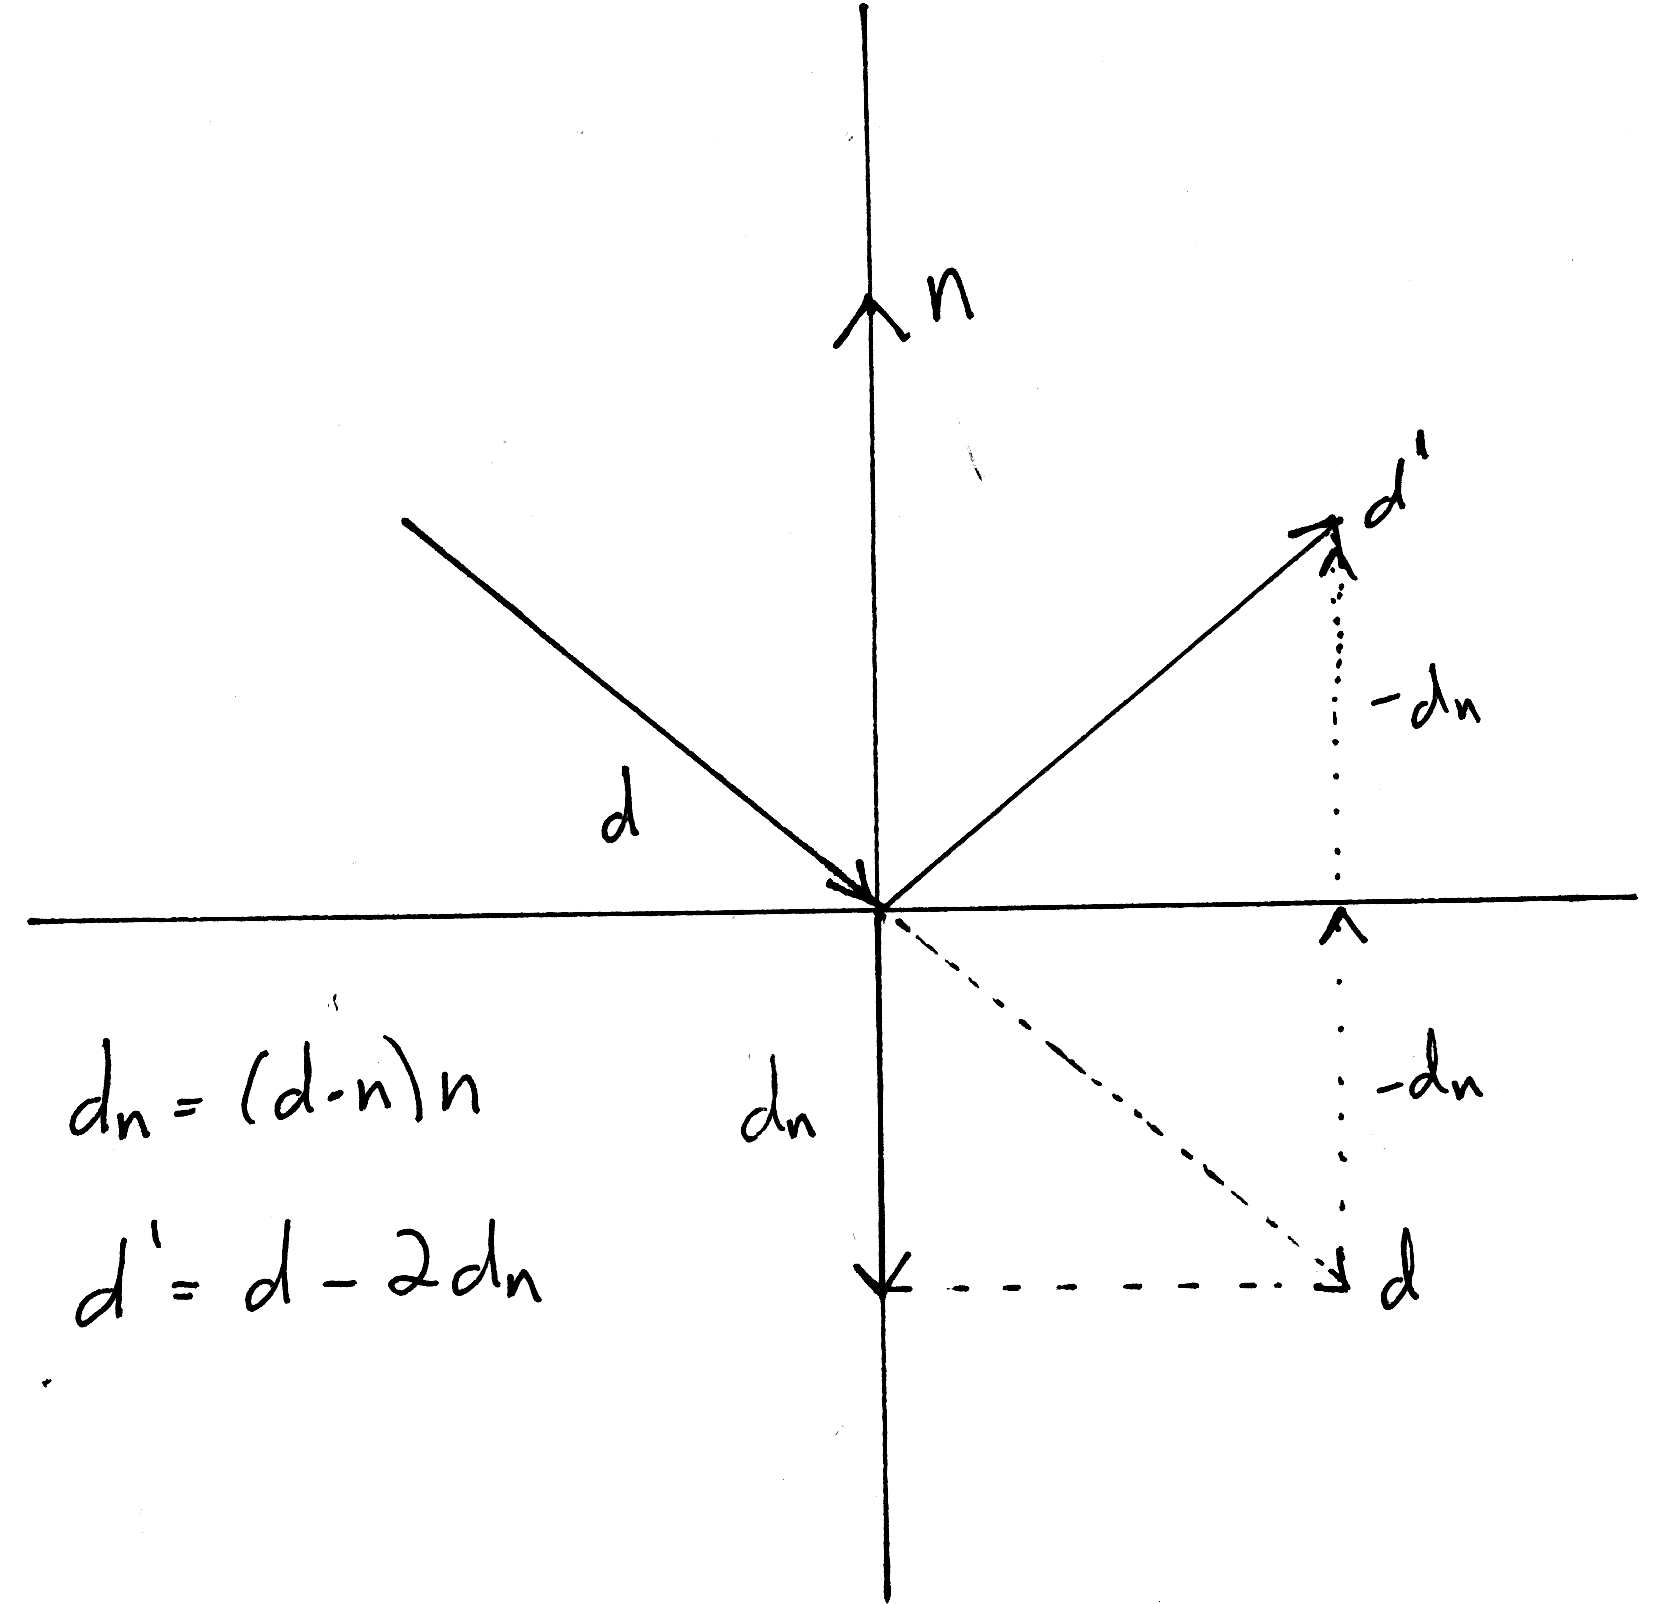 n
d'
-dn
d
-dn
dn = (d·n)n
dn
d' = d - 2dn
d